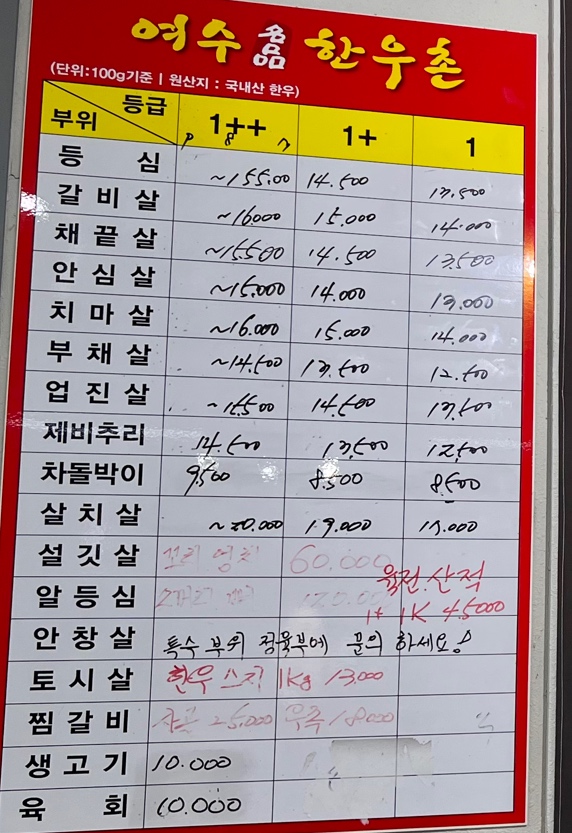 여수 名品 한우촌
(단위:100g기준 | 원산지 : 국내산 한우)
등급
부위 1++ 1+ 1
P 8 7
등 심 ~155.00 14.500 13,500
갈 비 살 ~16.000 15.000 14.000
채 끝 살 ~15.500 14.500 13,500
안 심 살 ~15.000 14.000 13.000
치 마 살 ~16.000 15.000 14.000
부 채 살 ~14.500 13.500 12.500
업 진 살 ~15.500 14.500 13.500
제비추리 14.500 13.500 12.500
차돌박이 9.500 8.500 8.500
살 치 살 ~20.000 19.000 17.000
설 깃 살 60.000
육전.산적
알 등 심 1+ 1K 45.000
안 창 살 특수 부위 정육부에 문의 하세요!
토 시 살 한우 스지 1Kg 13.000
찜 갈 비 25.000 우족 18.000
생 고 기 10.000
육 회 10.000